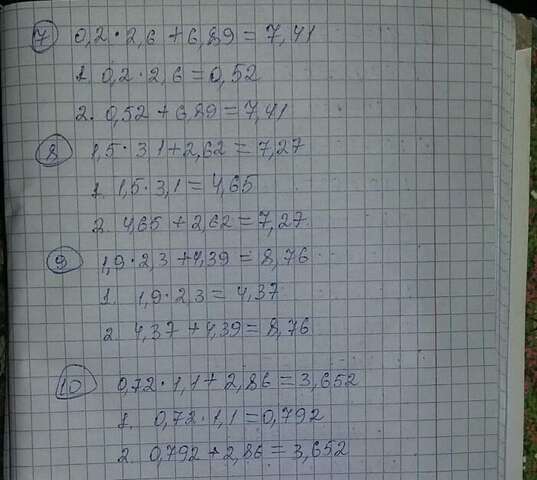 7 0,2 · 2,6 + 6,89 = 7,41
1. 0,2 · 2,6 = 0,52
2. 0,52 + 6,89 = 7,41
8 1,5 · 3,1 + 2,62 = 7,27
1. 1,5 · 3,1 = 4,65
2. 4,65 + 2,62 = 7,27
9 1,9 · 2,3 + 4,39 = 8,76
1. 1,9 · 2,3 = 4,37
2. 4,37 + 4,39 = 8,76
10 0,72 · 1,1 + 2,86 = 3,652
1. 0,72 · 1,1 = 0,792
2. 0,792 + 2,86 = 3,652